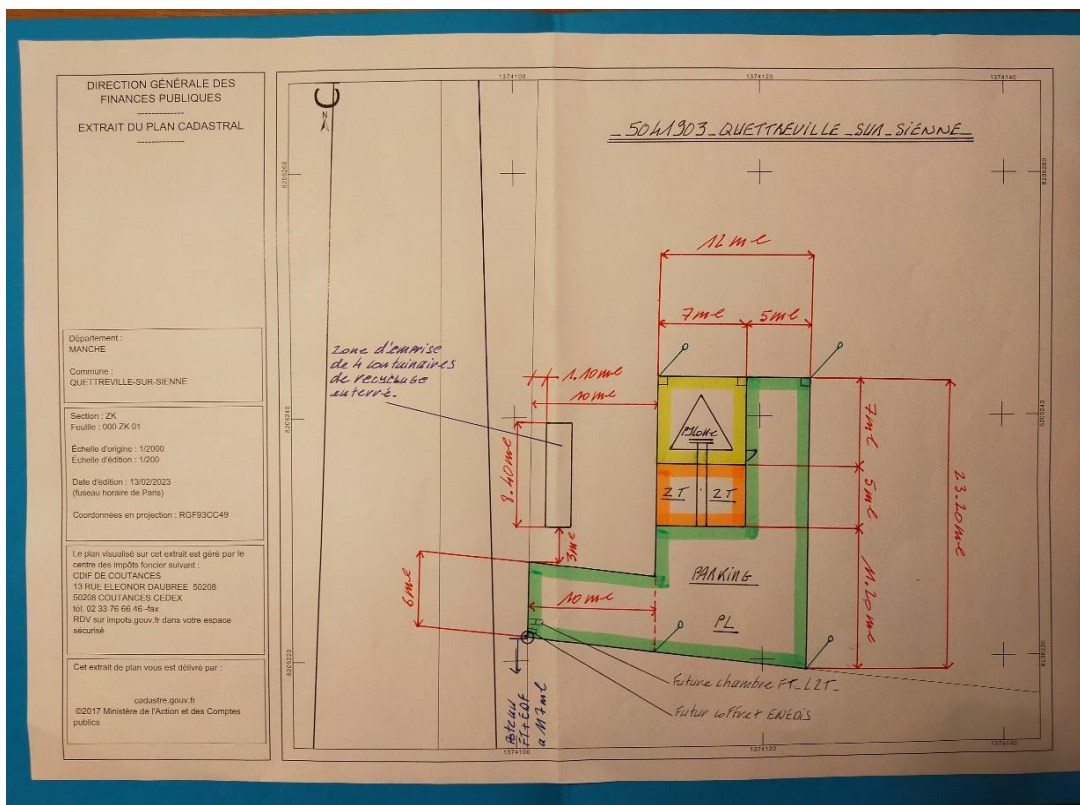 DIRECTION GÉNÉRALE DES
FINANCES PUBLIQUES
-------------
EXTRAIT DU PLAN CADASTRAL
-------------
Département :
MANCHE
Commune :
QUETTREVILLE-SUR-SIENNE
Section : ZK
Feuille : 000 ZK 01
Échelle d'origine : 1/2000
Échelle d'édition : 1/200
Date d'édition : 13/02/2023
(fuseau horaire de Paris)
Coordonnées en projection : RGF93CC49
Le plan visualisé sur cet extrait est géré par le
centre des impôts foncier suivant :
CDIF DE COUTANCES
13 RUE ELEONOR DAUBREE 50208
50208 COUTANCES CEDEX
tél. 02 33 76 66 46 -fax
RDV sur impots.gouv.fr dans votre espace
sécurisé
Cet extrait de plan vous est délivré par :
cadastre.gouv.fr
©2017 Ministère de l'Action et des Comptes
publics
1374100
1374120
1374140
N
_5041903_QUETTREVILLE_SUR_SIENNE_
8206260
8206260
12 ml
7ml
5ml
Zone d'emprise
de 4 containaires
de recyclage
enterré.
1.10ml
10ml
8206240
8206240
Pylone
7ml
5ml
23.20ml
ZT
ZT
3ml
6ml
10ml
PARKING
PL
11.20ml
8206220
8206220
Future chambre FT_L2T_
Futur coffret ENEDIS
Poteau
FT+EDF
a 117ml
1374100
1374120
1374140